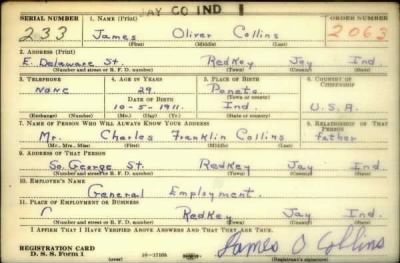 JAY CO IND
SERIAL NUMBER 1. NAME (Print) ORDER NUMBER
233 James Oliver Collins 2063
(First) (Middle) (Last)
2. ADDRESS (Print)
E. Delaware St. Redkey Jay Ind.
(Number and street or R. F. D. number) (Town) (County) (State)
3. TELEPHONE 4. AGE IN YEARS 5. PLACE OF BIRTH 6. COUNTRY OF CITIZENSHIP
None 29. Poneto
DATE OF BIRTH (Town or county)
10-5-1911. Ind. U.S.A.
(Exchange) (Number) (Mo.) (Day) (Yr.) (State or country)
7. NAME OF PERSON WHO WILL ALWAYS KNOW YOUR ADDRESS 8. RELATIONSHIP OF THAT PERSON
Mr. Charles Franklin Collins father
(Mr., Mrs., Miss) (First) (Middle) (Last)
9. ADDRESS OF THAT PERSON
So. George St. Redkey Jay Ind.
(Number and street or R. F. D. number) (Town) (County) (State)
10. EMPLOYER'S NAME
General Employment.
11. PLACE OF EMPLOYMENT OR BUSINESS
Redkey Jay Ind.
(Number and street or R. F. D. number) (Town) (County) (State)
I AFFIRM THAT I HAVE VERIFIED ABOVE ANSWERS AND THAT THEY ARE TRUE.
REGISTRATION CARD
D. S. S. Form 1 16-17105 (Registrant's signature)
James O Collins